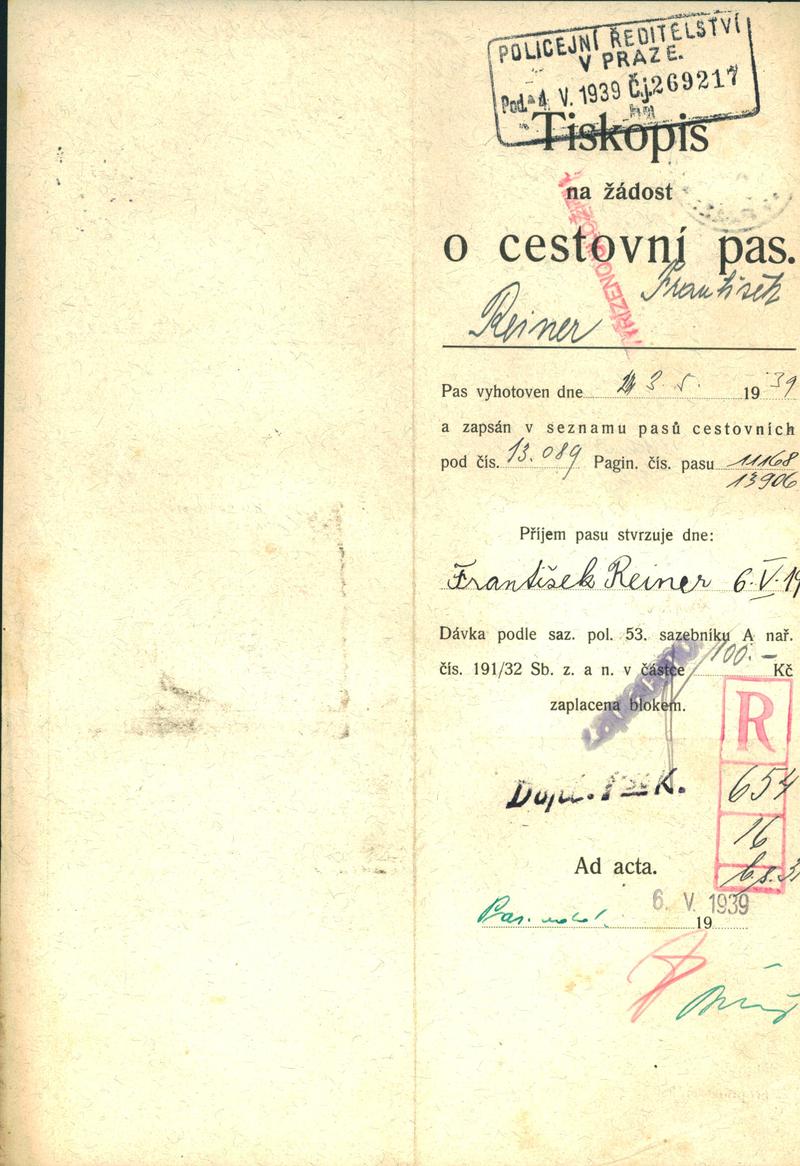 POLICEJNÍ ŘEDITELSTVÍ
V PRAZE.
Pod. 4 V. 1939 Čj. 269217
Tiskopis
na žádost
o cestovní pas.
František
Reiner
Pas vyhotoven dne 3. 5. 1939
a zapsán v seznamu pasů cestovních
pod čís. 13.089 Pagin. čís. pasu 11168
13906
Příjem pasu stvrzuje dne:
František Reiner 6. V. 19
Dávka podle saz. pol. 53. sazebníku A nař.
čís. 191/32 Sb. z. a n. v částce 100.- Kč
zaplacena blokem.
R
Dopl. K.
654
16
Ad acta.
6. V. 1939
19